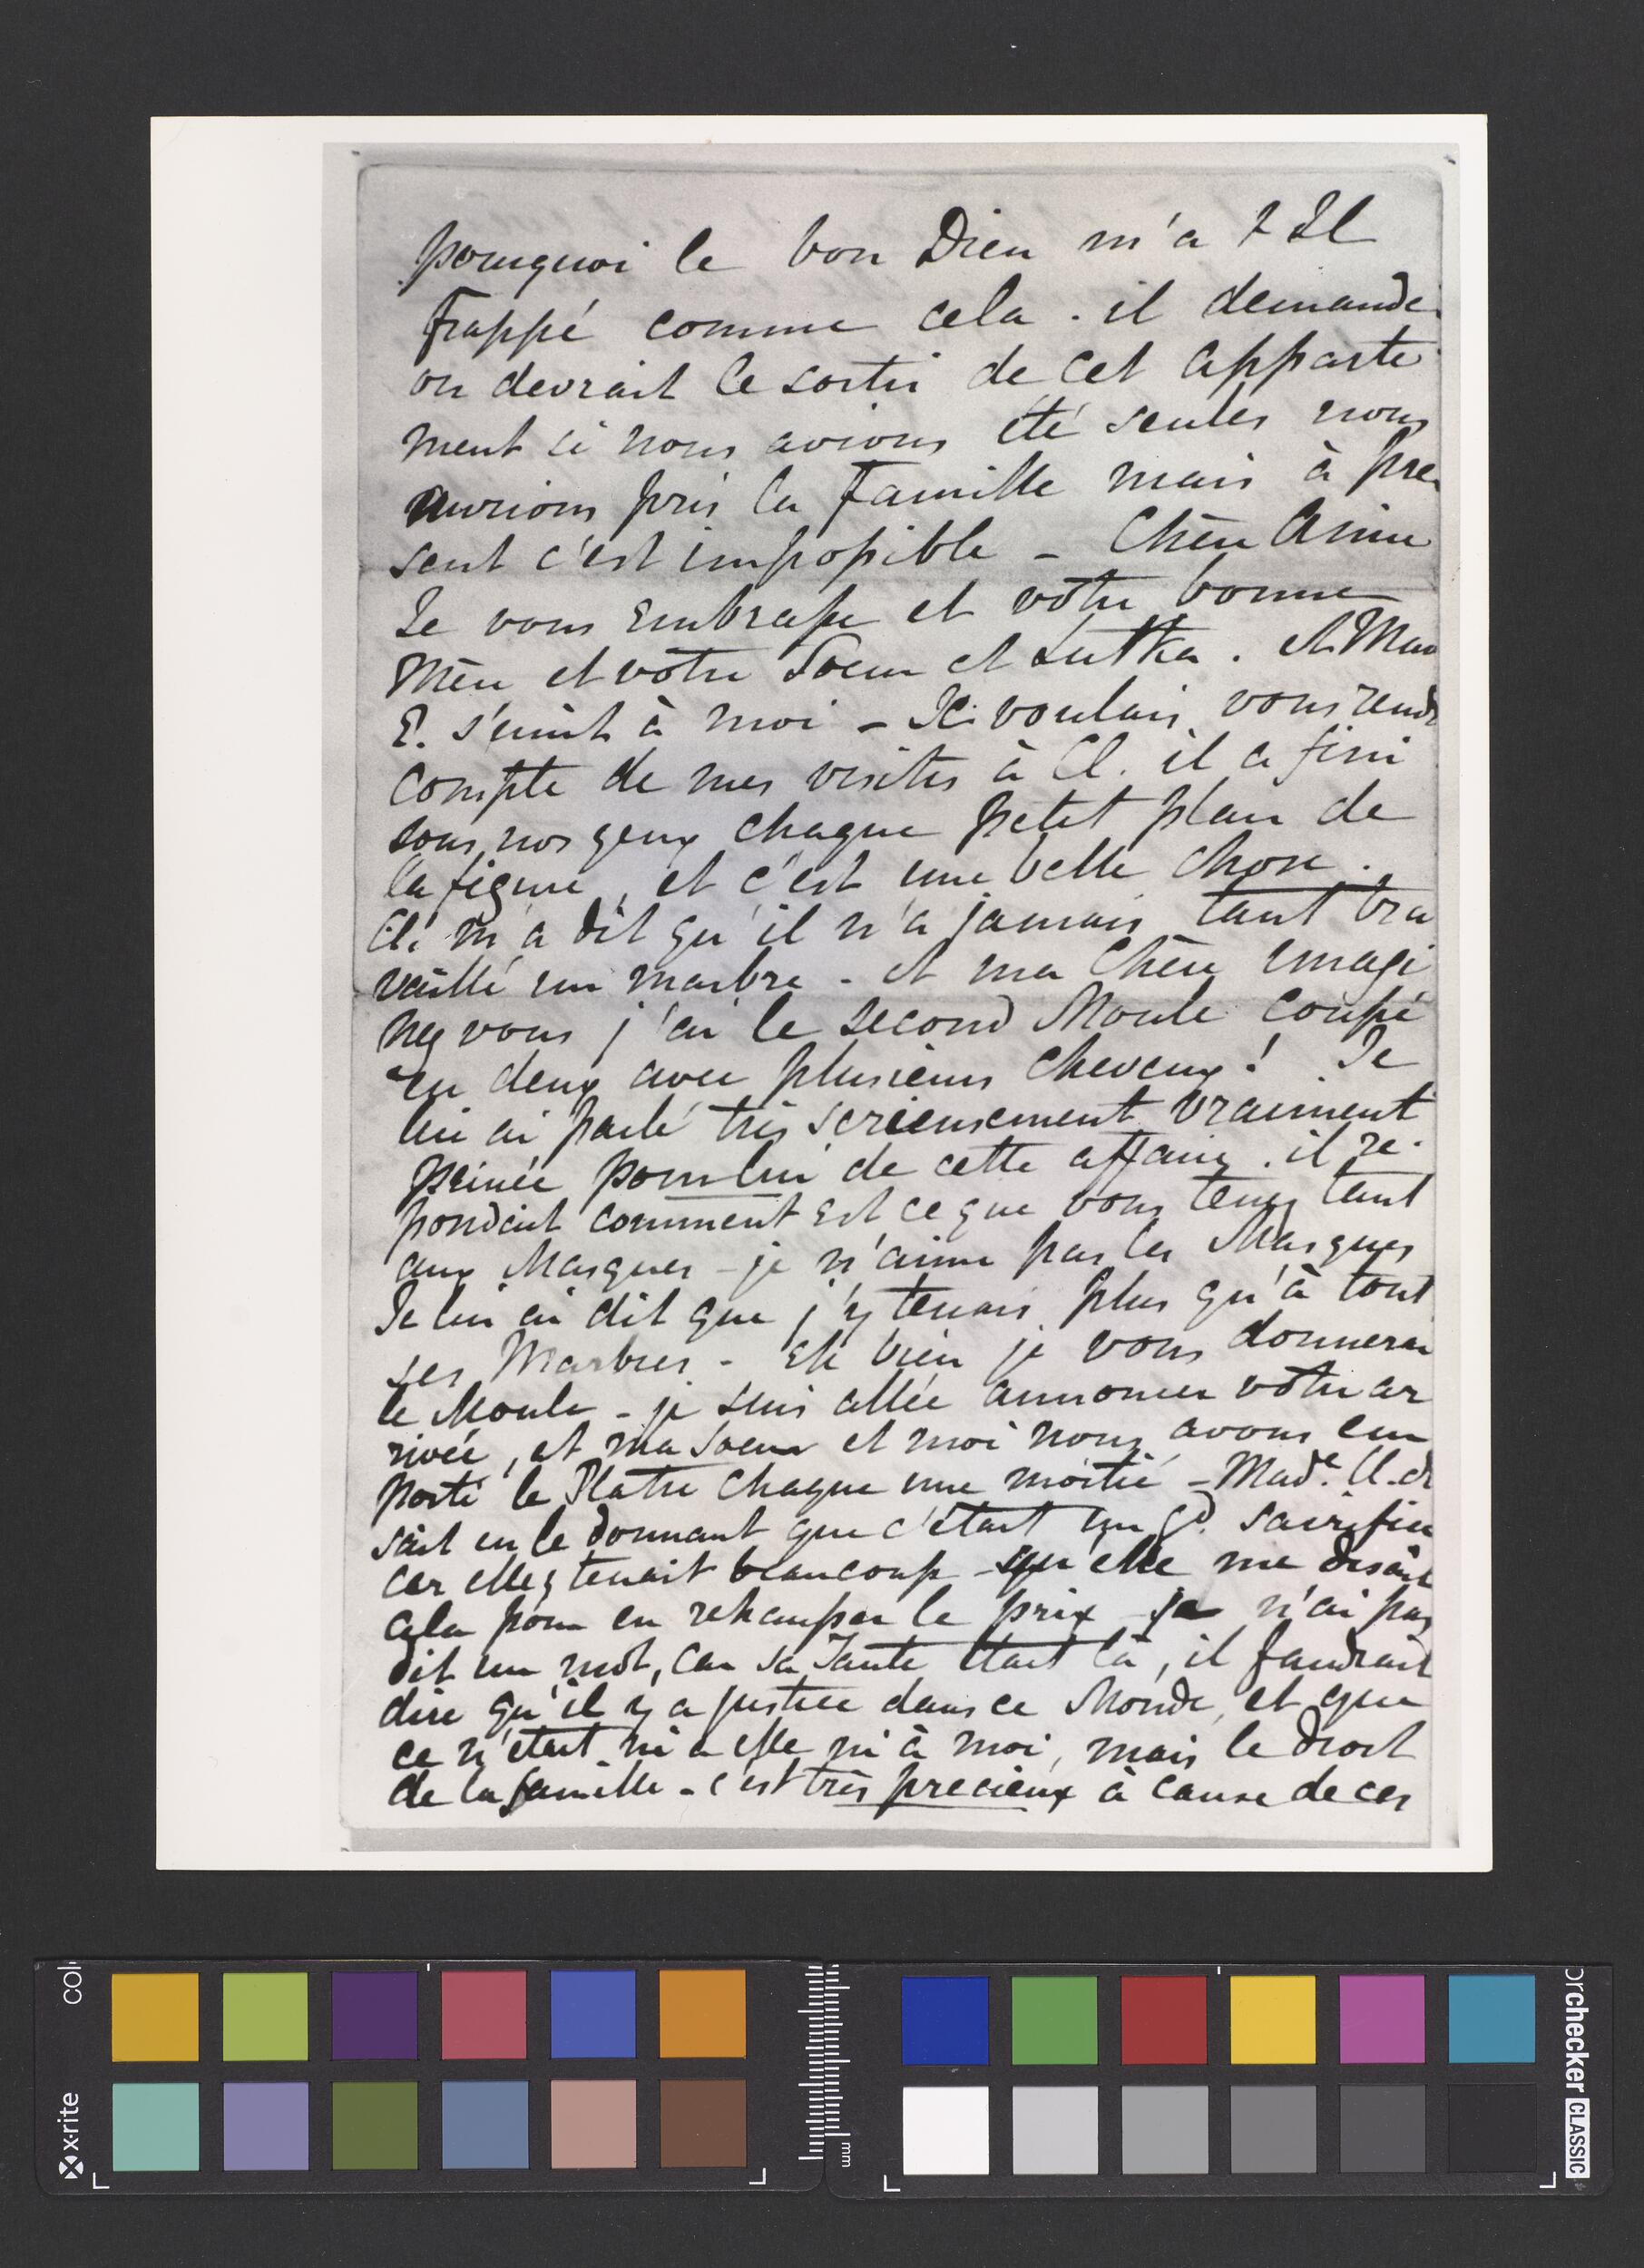 pourquoi le bon Dieu m'a t Il
frappé comme cela . il demande
on devrait le sortir de cet apparte
ment si nous avions été seules nous
aurions pris la famille mais à pre
sent c'est impossible - Chère Amie
Je vous Embrasse et votre bonne
Mère et votre Soeur et Lutka . et Mad
E. s'unit à moi - Je voulais vous rendr
compte de mes visites à Cl. il a fini
sous nos yeux chaque petit plan de
la figure, et c'est une belle chose .
Cl. m'a dit qu'il n'a jamais tant tra
vaillé un marbre - et ma Chère imagi
nez vous j'ai le second Moule coupé
en deux avec plusieurs cheveux ! Je
lui ai parlé très serieusement vraiment
peinée pour lui de cette affaire . il re-
pondait comment Est ce que vous tenez tant
aux Masques - je n'aime pas les Masques
Je lui ai dit que j'y tenais plus qu'à tout
ses Marbres - Eh bien je vous donnerai
le Moule - je suis allée annoncer votre ar
rivée, et ma Soeur et moi nous avons em
porté le Platre chaque une moitié - Made. Cl. di
sait en le donnant que c'était un gd. sacrifice
car elle y tenait beaucoup - qu'elle me disait
cela pour en rehausser le prix je n'ai pas
dit un mot, car sa Tante était là, il faudrait
dire qu'il y a justice dans ce Monde, et que
ce n'était ni a elle ni à moi, mais le droit
de la famille - c'est très precieux à cause de ces
col
x-rite
mm
orchecker CLASSIC